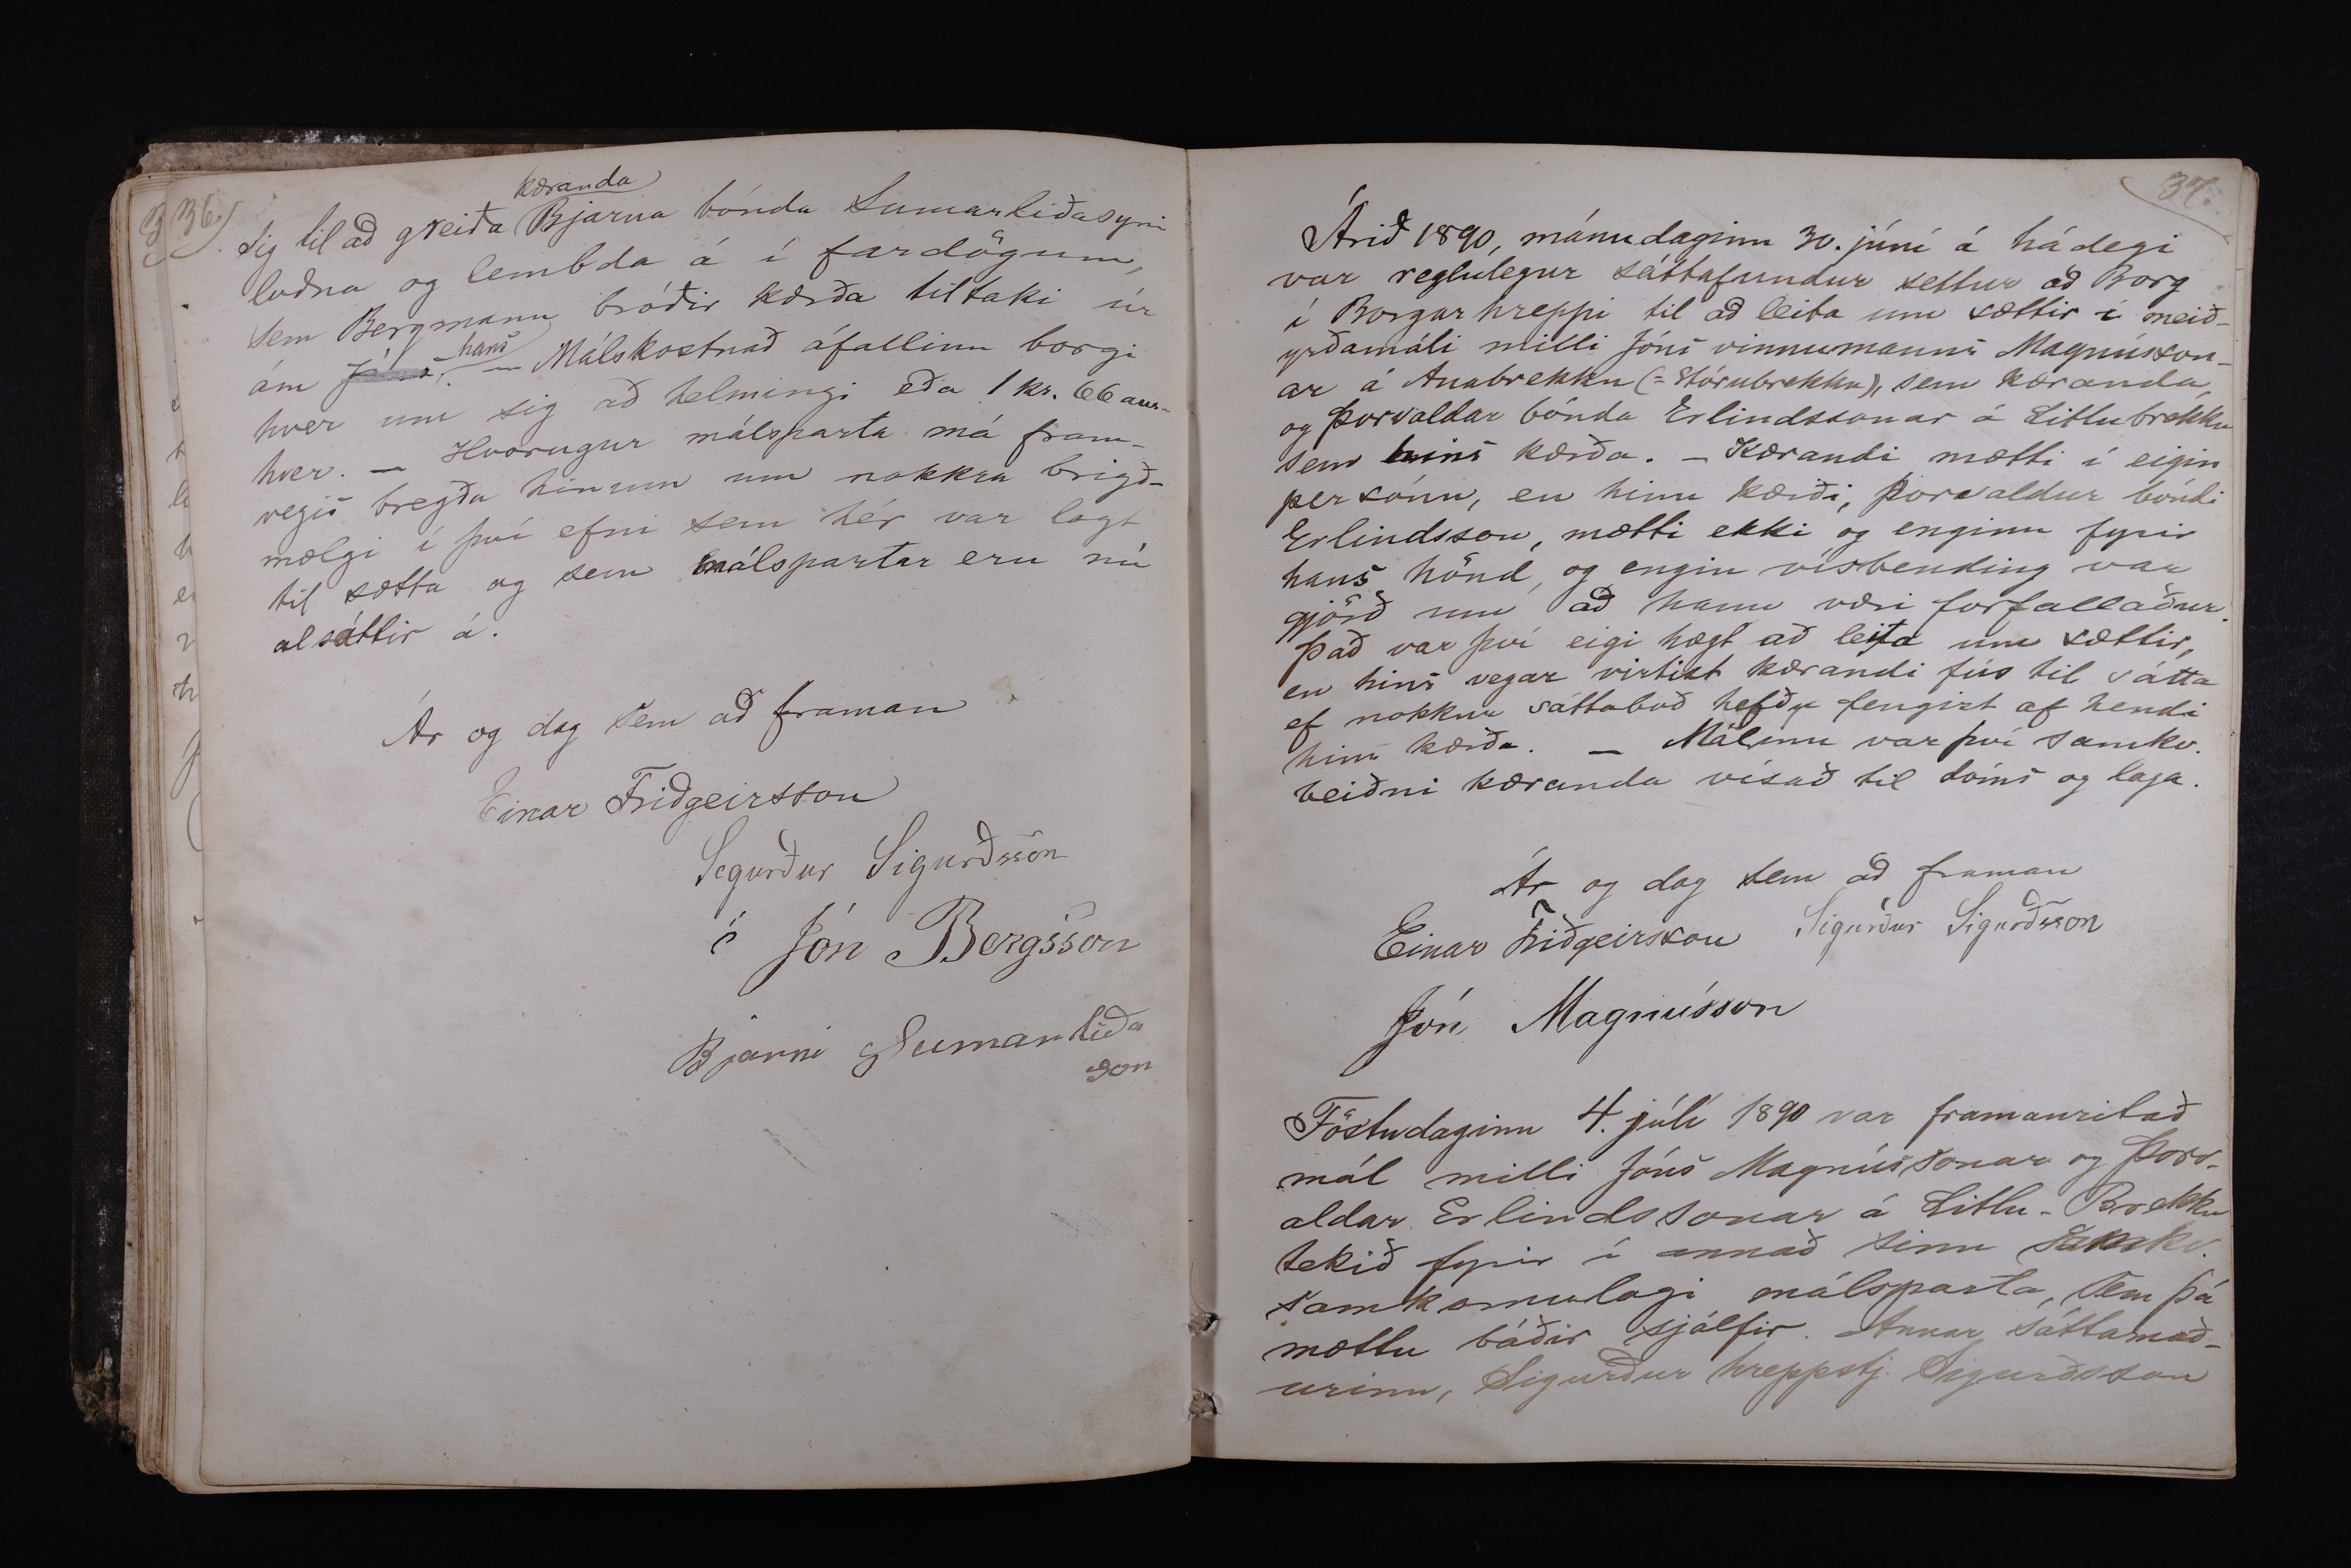 36.)
kæranda
sig til að greiða Bjarna bónda Sumarliðasyni
loðna og lembda á í fardögum,
sem Bergmann bróðir kærða tiltaki úr
hans
ám Jóns. — Málskostnað áfallinn borgi
hver um sig að helmingi eða 1 kr. 66 aur-
hver. — Hvorugur málsparta má fram-
vegis bregða hinum um nokkra brigð-
mælgi í því efni sem hér var lagt
til sætta og sem málspartar eru nú
alsáttir á.
Ár og dag sem að framan
Einar Friðgeirsson
Sigurður Sigurðsson
Jón Bergsson
Bjarni Sumarliða
son
37.
Árið 1890, mánudaginn 30. júní á hádegi
var reglulegur sáttafundur settur að Borg
í Borgarhreppi til að leita um sættir í meið-
yrðamáli milli Jóns vinnumanns Magnússon-
ar á Anabrekku (= Stórubrekku), sem kæranda,
og Þorvaldar bónda Erlindssonar á Litlubrekku
sem hins kærða. — Kærandi mætti í eigin
persónu, en hinn kærði, Þorvaldur bóndi
Erlindsson, mætti ekki og enginn fyrir
hans hönd, og engin vísbending var
gjörð um að hann væri forfallaður.
Það var því eigi hægt að leita um sættir,
en hins vegar virtist kærandi fús til sátta
ef nokkur sáttaboð hefðu fengist af hendi
hins kærða. — Málinu var því samkv.
beiðni kæranda vísað til dóms og laga.
Ár og dag sem að framan
Einar Friðgeirsson Sigurður Sigurðsson
Jón Magnússon
Föstudaginn 4. júlí 1890 var framanritað
mál milli Jóns Magnússonar og Þorv-
aldar Erlindssonar á Litlu-Brekku
tekið fyrir í annað sinn samkv.
samkomulagi málsparta, sem þá
mættu báðir sjálfir. Annar sáttamað-
urinn, Sigurður hreppstj. Sigurðsson